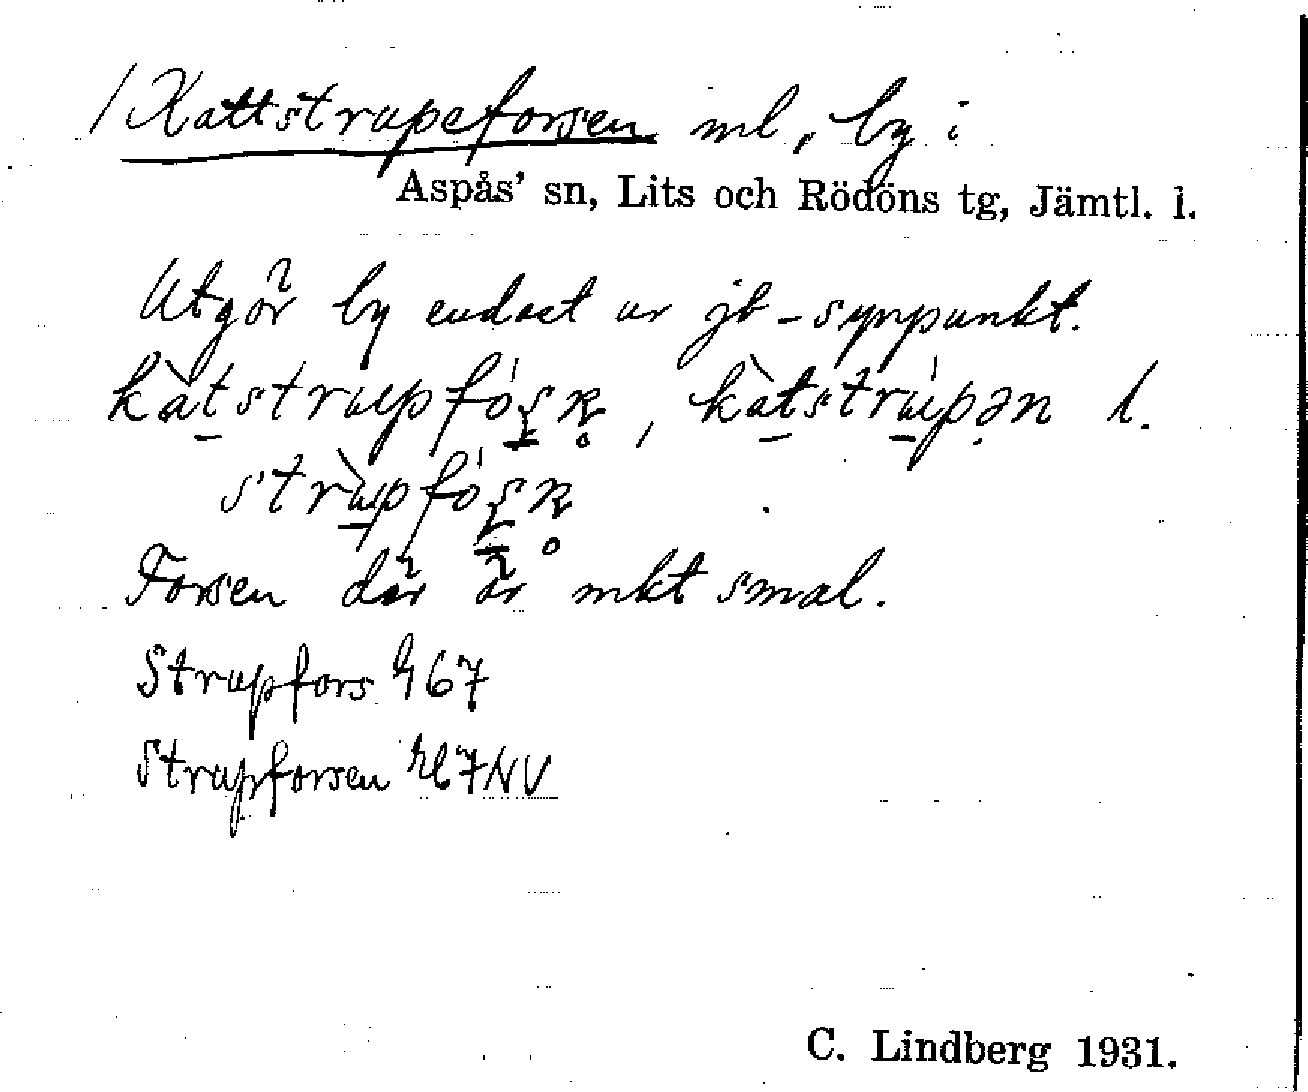 /Kattstrupeforsen ml, by i
Aspås' sn, Lits och Rödöns tg, Jämtl. l.
Utgör by endast ur jb-synpunkt.
kàtstrupfórsn, kàtstrúpən l.
strùpfórsn
Forsen där är mkt smal.
Strupfors 67
Strupforsen 7NV
C. Lindberg 1931.